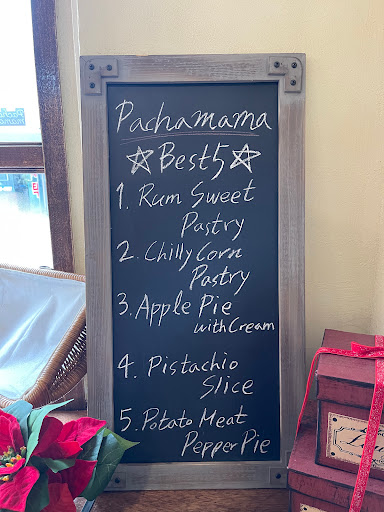 Pachamama
☆Best5☆
1. Rum Sweet
Pastry
2. Chilly Corn
Pastry
3. Apple Pie
with Cream
4. Pistachio
Slice
5. Potato Meat
Pepper Pie